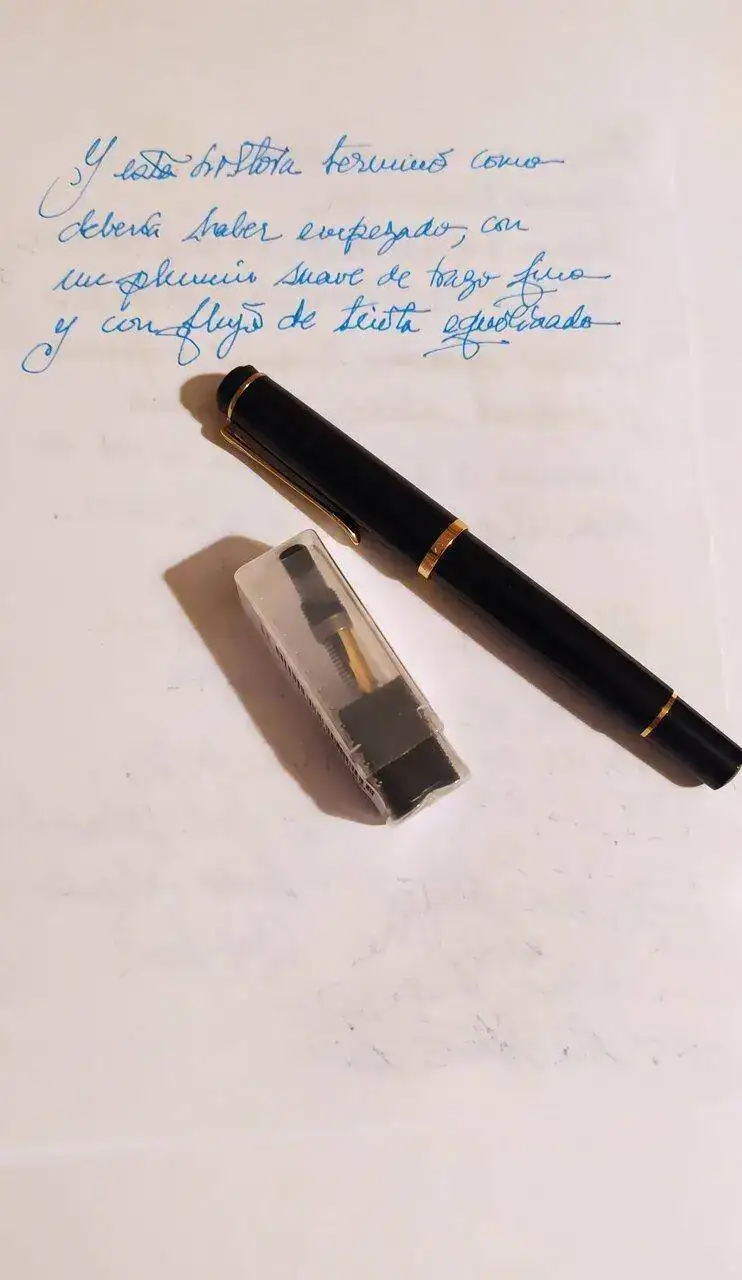 Y esta historia terminó como
debería haber empezado, con
un plumin suave de trazo fino
y con flujo de tinta equilibrado